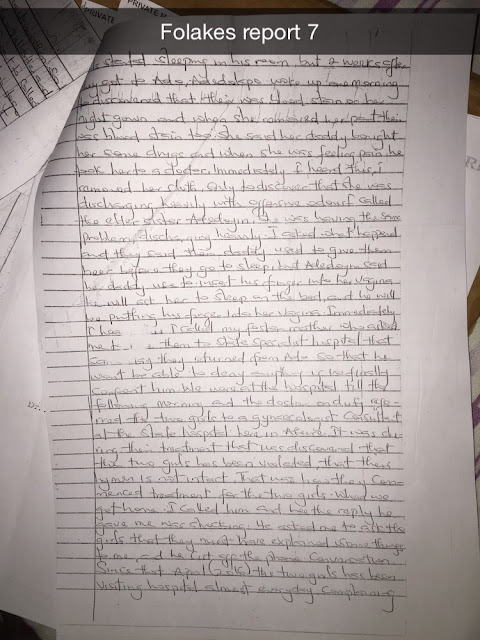 Folakes report 7
PRIVATE
PRIVATE
started sleeping in his room but 2 weeks after
got to Ado, Adedolapo woke up one morning
discovered that their was blood stain on her
night gown and when she removed her pant their
was blood stain too. She said her daddy bought
her some drugs and when she was feeling pain, he
took her to a doctor. Immediately I heard this, I
removed her cloth, only to discover that she was
discharging heavily with offensive odour. I called
the elder sister Adedoyin. She was having the same
problem, discharging heavily. I asked what happend
and they said their daddy used to give them
beer before they go to sleep, but Adedoyin said
her daddy use to insert his finger into her vagina.
he will ask her to sleep on the bed, and he will
be putting his finger into her vagina. Immediately
I called my foster mother who asked
me them to State specialist hospital that
they returned from Ado so that he
wont be able to deny anything if we finally
confront him. We were at the hospital till the
following morning and the doctor on duty refe-
rred the two girls to a gynecologist Consultant
at the State hospital here in Akure. It was du-
ring their treatment that was discovered that
the two girls has been violated, that their
hymen is not intact. That was how they com-
menced treatment for the two girls. When we
got home, I called him and the reply he
gave me was shocking. He asked me to ask the
girls that they must have explained some things
to me and he cut off the phone conversation.
Since that April (2015) the two girls has been
visiting hospital almost everyday complaining